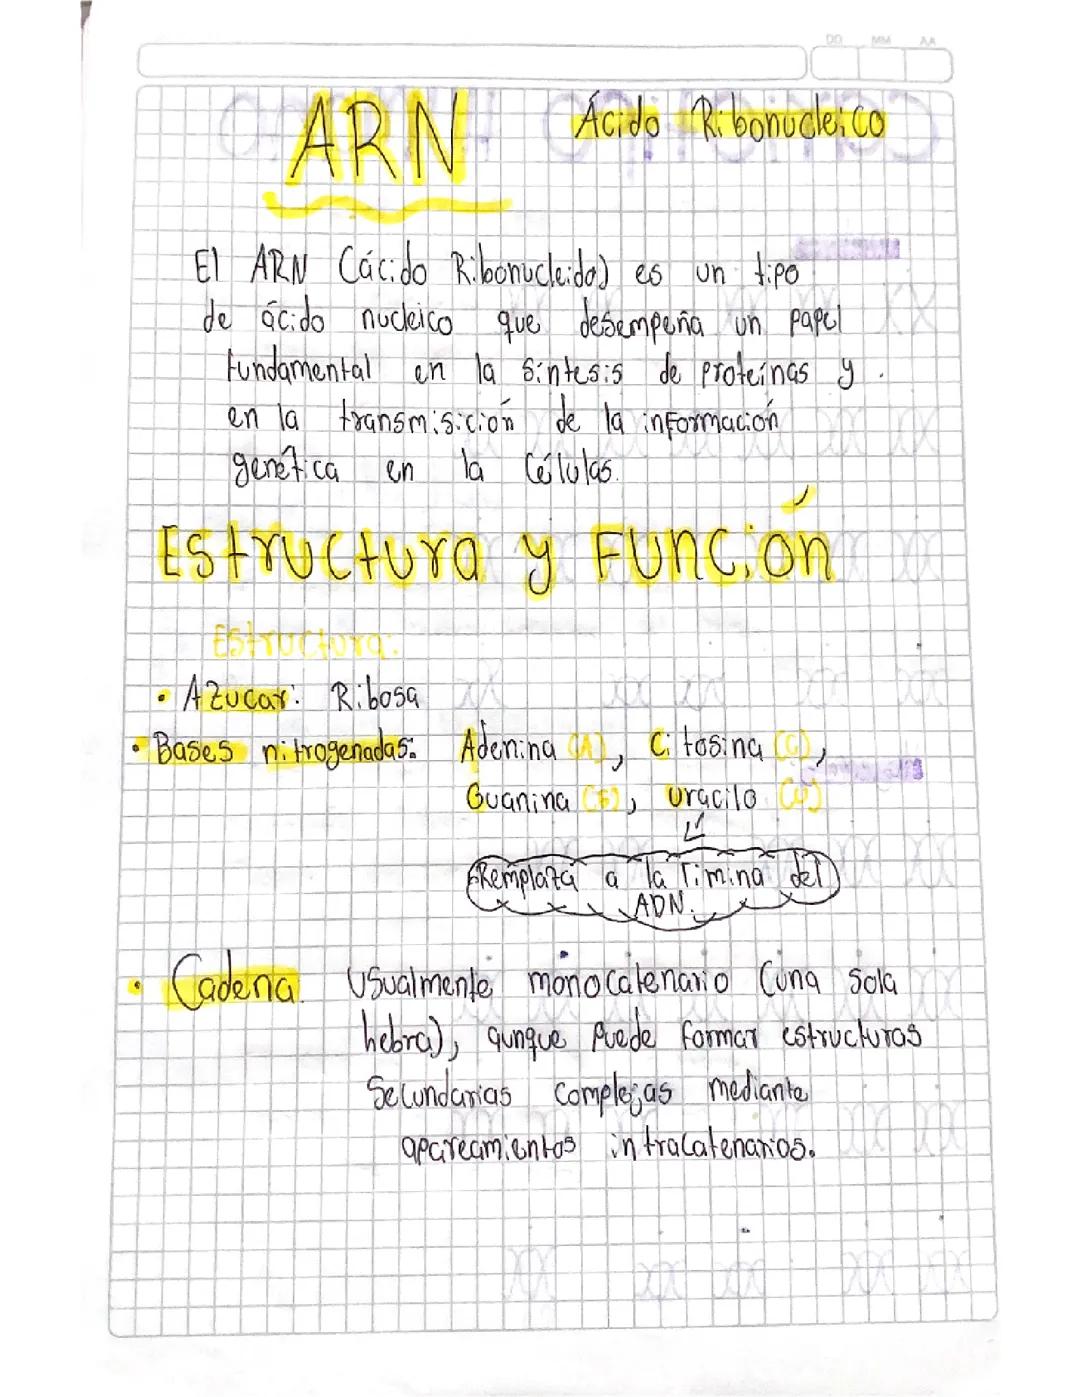 DD MM AA
ARN Ácido Ribonucleico
El ARN (ácido Ribonucleido) es un tipo
de ácido nucleico que desempeña un papel
fundamental en la síntesis de proteínas y
en la transmisición de la información
genética en la Células.
Estructura y Función
Estructura:
• Azucar: Ribosa
• Bases nitrogenadas: Adenina (A), Citosina (C),
Guanina (G), Uracilo (U)
Remplaza a la Timina del
ADN.
• Cadena. Usualmente monocatenario (una sola
hebra), aunque puede formar estructuras
Secundarias complejas mediante
apareamientos intracatenarios.